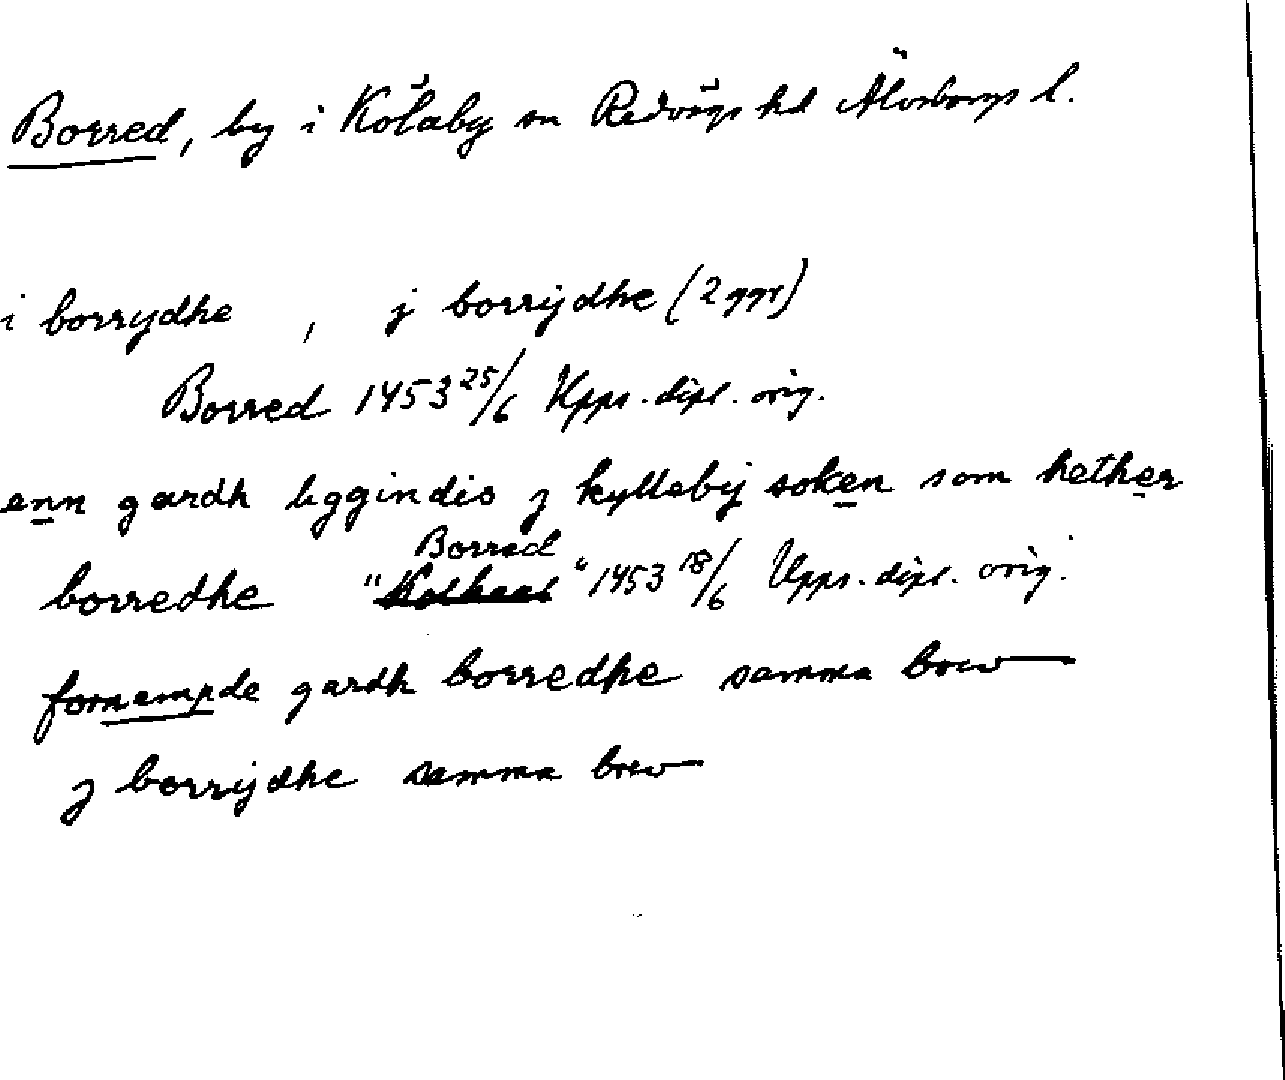 Borred, by i Kölaby sn Redvägs hd Älvsborgs l.
i borrydhe , j borrijdhe (2 ggr)
Borred 1453 25/6 Upps. dipl. orig.
enn gardh liggindis j kyllebij soken som hether
Borred
borredhe " " 1453 18/6 Upps. dipl. orig.
fornempde gardh borredhe samma brev
j borrijdhe samma brev